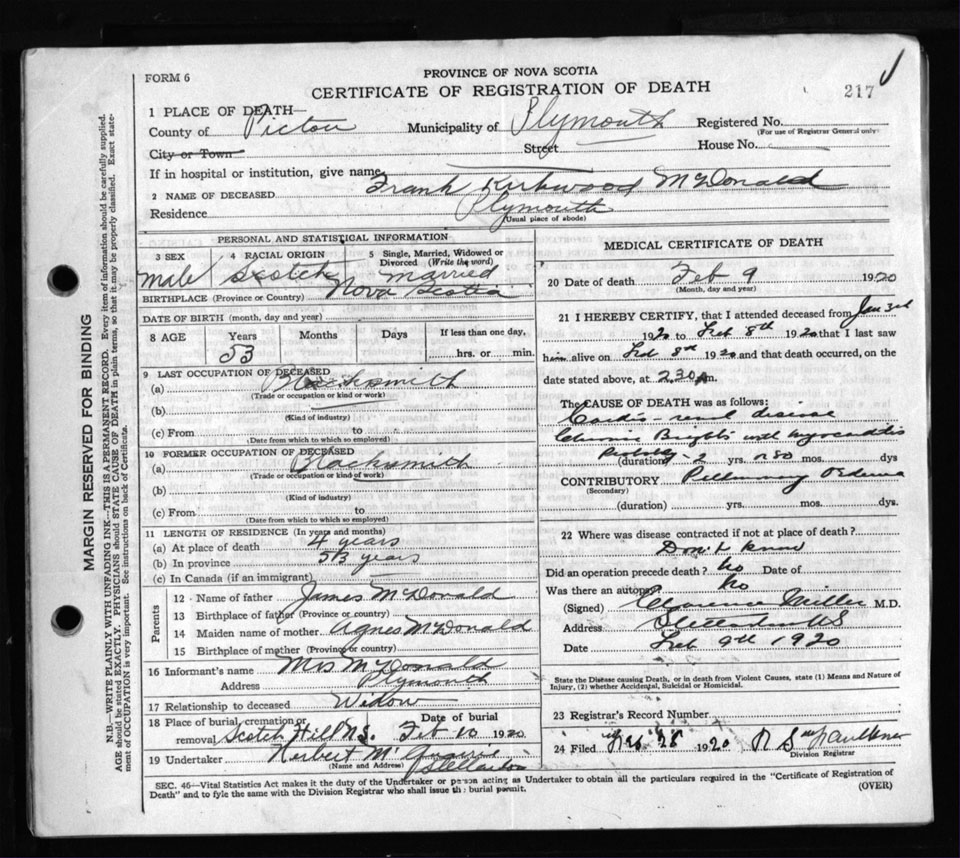 FORM 6
PROVINCE OF NOVA SCOTIA
CERTIFICATE OF REGISTRATION OF DEATH
217
1 PLACE OF DEATH—
County of Pictou Municipality of Plymouth Registered No.
(For use of Registrar General only)
City or Town Street House No.
If in hospital or institution, give name
2 NAME OF DECEASED Frank Kirkwood McDonald
Residence Plymouth
(Usual place of abode)
PERSONAL AND STATISTICAL INFORMATION
3 SEX 4 RACIAL ORIGIN 5 Single, Married, Widowed or Divorced (Write the word)
male Scotch married
BIRTHPLACE (Province or Country) Nova Scotia
DATE OF BIRTH (month, day and year)
8 AGE Years Months Days If less than one day,
53 hrs. or min.
9 LAST OCCUPATION OF DECEASED
(a) Blacksmith
(Trade or occupation or kind or work)
(b)
(Kind of industry)
(c) From to
(Date from which to which so employed)
10 FORMER OCCUPATION OF DECEASED
(a) Blacksmith
(Trade or occupation or kind of work)
(b)
(Kind of industry)
(c) From to
(Date from which to which so employed)
11 LENGTH OF RESIDENCE (In years and months)
(a) At place of death 4 years
(b) In province 53 years
(c) In Canada (if an immigrant)
Parents
12 Name of father James McDonald
13 Birthplace of father (Province or country)
14 Maiden name of mother Agnes McDonald
15 Birthplace of mother (Province or country)
16 Informant's name Mrs McDonald
Address Plymouth
17 Relationship to deceased Widow
18 Place of burial, cremation or removal Scotch Hill N.S. Date of burial Feb 10 1920
19 Undertaker Herbert
(Name and Address)
MEDICAL CERTIFICATE OF DEATH
20 Date of death Feb 9 1920
(Month, day and year)
21 I HEREBY CERTIFY, that I attended deceased from Jan 3rd
1920 to Feb 8th 1920 that I last saw
him alive on Feb 8th 1920 and that death occurred, on the
date stated above, at 2.30 m.
The CAUSE OF DEATH was as follows:
Cardio-renal disease
Chronic Brights with myocarditis
Probably
(duration) 2 yrs. mos. dys
CONTRIBUTORY Pulmonary Oedema
(Secondary)
(duration) yrs. mos. dys.
22 Where was disease contracted if not at place of death?
Don't know
Did an operation precede death? No Date of
Was there an autopsy? No
(Signed) Clarence Miller M.D.
Address Stellarton N.S.
Date Feb 9th 1920
State the Disease causing Death, or in death from Violent Causes, state (1) Means and Nature of
Injury, (2) whether Accidental, Suicidal or Homicidal.
23 Registrar's Record Number
24 Filed 28 1920
Division Registrar
SEC. 46—Vital Statistics Act makes it the duty of the Undertaker or person acting as Undertaker to obtain all the particulars required in the "Certificate of Registration of
Death" and to fyle the same with the Division Registrar who shall issue the burial permit.
(OVER)
MARGIN RESERVED FOR BINDING
N.B.—WRITE PLAINLY WITH UNFADING INK—THIS IS A PERMANENT RECORD. Every item of information should be carefully supplied.
AGE should be stated EXACTLY. PHYSICIANS should STATE CAUSE OF DEATH in plain terms, so that it may be properly classified. Exact state-
ment of OCCUPATION is very important. See instructions on back of Certificate.